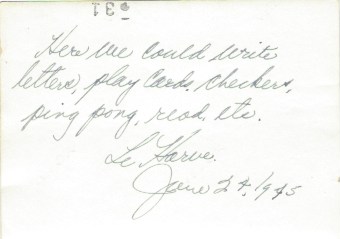 31
Here we could write
letters, play cards, checkers,
ping pong, read, etc.
Le Harve.
June 24, 1945